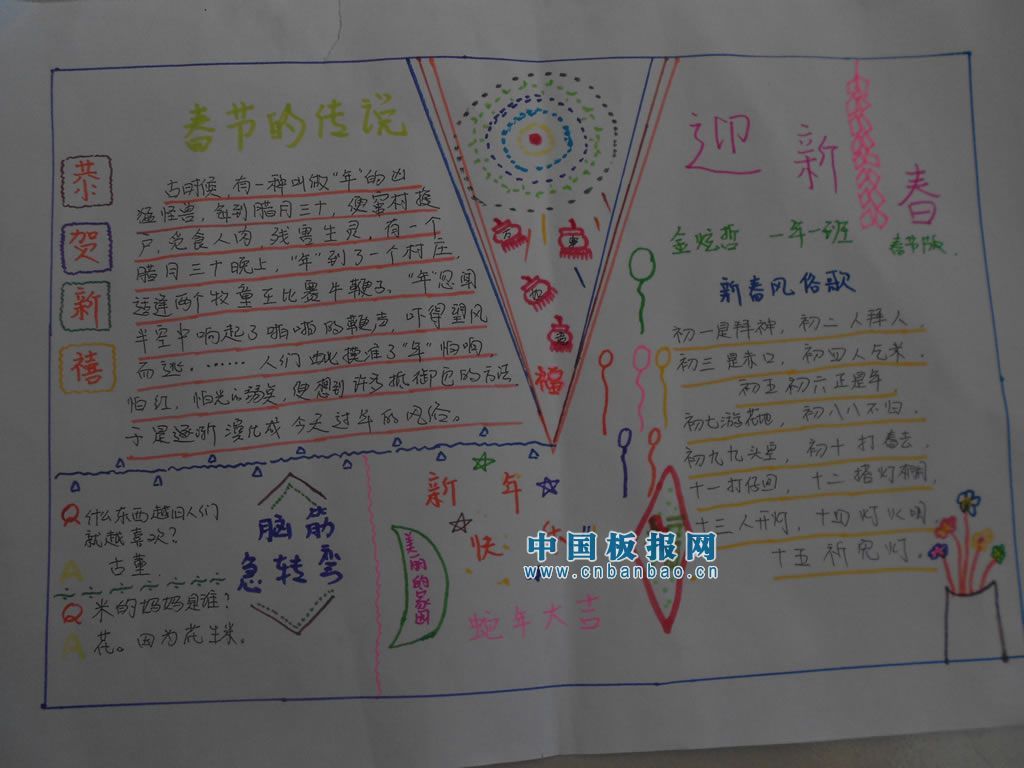 春节的传说
共
贺
新
禧
古时候,有一种叫做“年”的凶
猛怪兽,每到腊月三十,便窜村挨
户,觅食人肉,残害生灵,有一个
腊月三十晚上,“年”到了一个村庄,
适逢两个牧童在比赛牛鞭子,“年”忽闻
半空中响起了啪啪的鞭声,吓得望风
而逃.……人们 摸准了“年”怕响,
怕红,怕光的弱点,便想到许多抵御它的方法
于是逐渐演化成今天过年的风俗。
Q 什么东西越旧人们
就越喜欢?
A 古董
Q 米的妈妈是谁?
A 花。因为花生米。
脑筋
急转弯
福
新年
快
美丽的家园
蛇年大吉
迎新春
金炫哲 一年一班 春节版
新春风俗歌
初一是拜神,初二人拜人
初三是赤口,初四人乞米
初五初六正是年
初七游花地,初八八不归
初九九头空,初十打春去
十一打仔回,十二搭灯棚,
十三人开灯,十四灯火明
十五祈完灯.
中国板报网
www.cnbanbao.cn